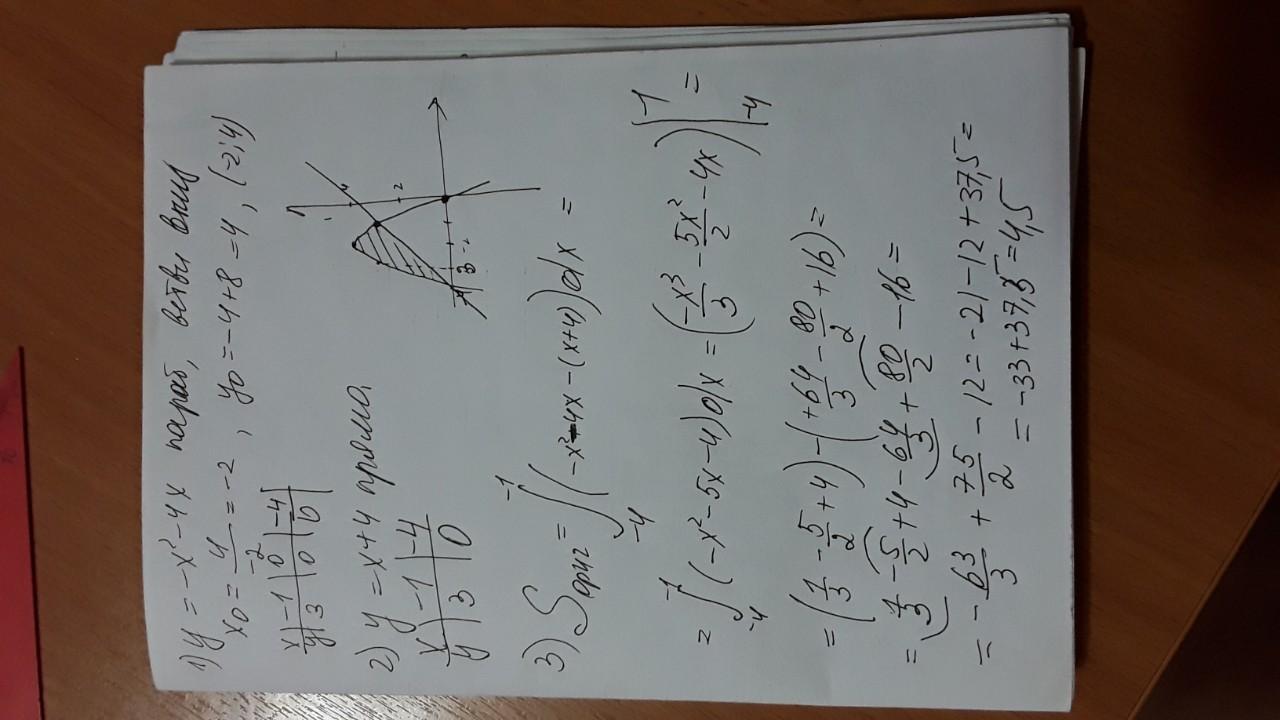 1) y = -x² - 4x параб, ветви вниз
x₀ = 4/-2 = -2, y₀ = -4+8 = 4, (-2; 4)
x | -1 | 0 | -4
y | 3 | 0 | 0
2) y = x+4 прямая
x | -1 | -4
y | 3 | 0
4
2
3) Sфиг = ∫₋₄⁻¹ (-x² - 4x - (x+4)) dx =
= ∫₋₄⁻¹ (-x² - 5x - 4) dx = (-x³/3 - 5x²/2 - 4x) |₋₄⁻¹ =
= (1/3 - 5/2 + 4) - (+64/3 - 80/2 + 16) =
= 1/3 - 5/2 + 4 - 64/3 + 80/2 - 16 =
= - 63/3 + 75/2 - 12 = -21 - 12 + 37,5 =
= -33 + 37,5 = 4,5